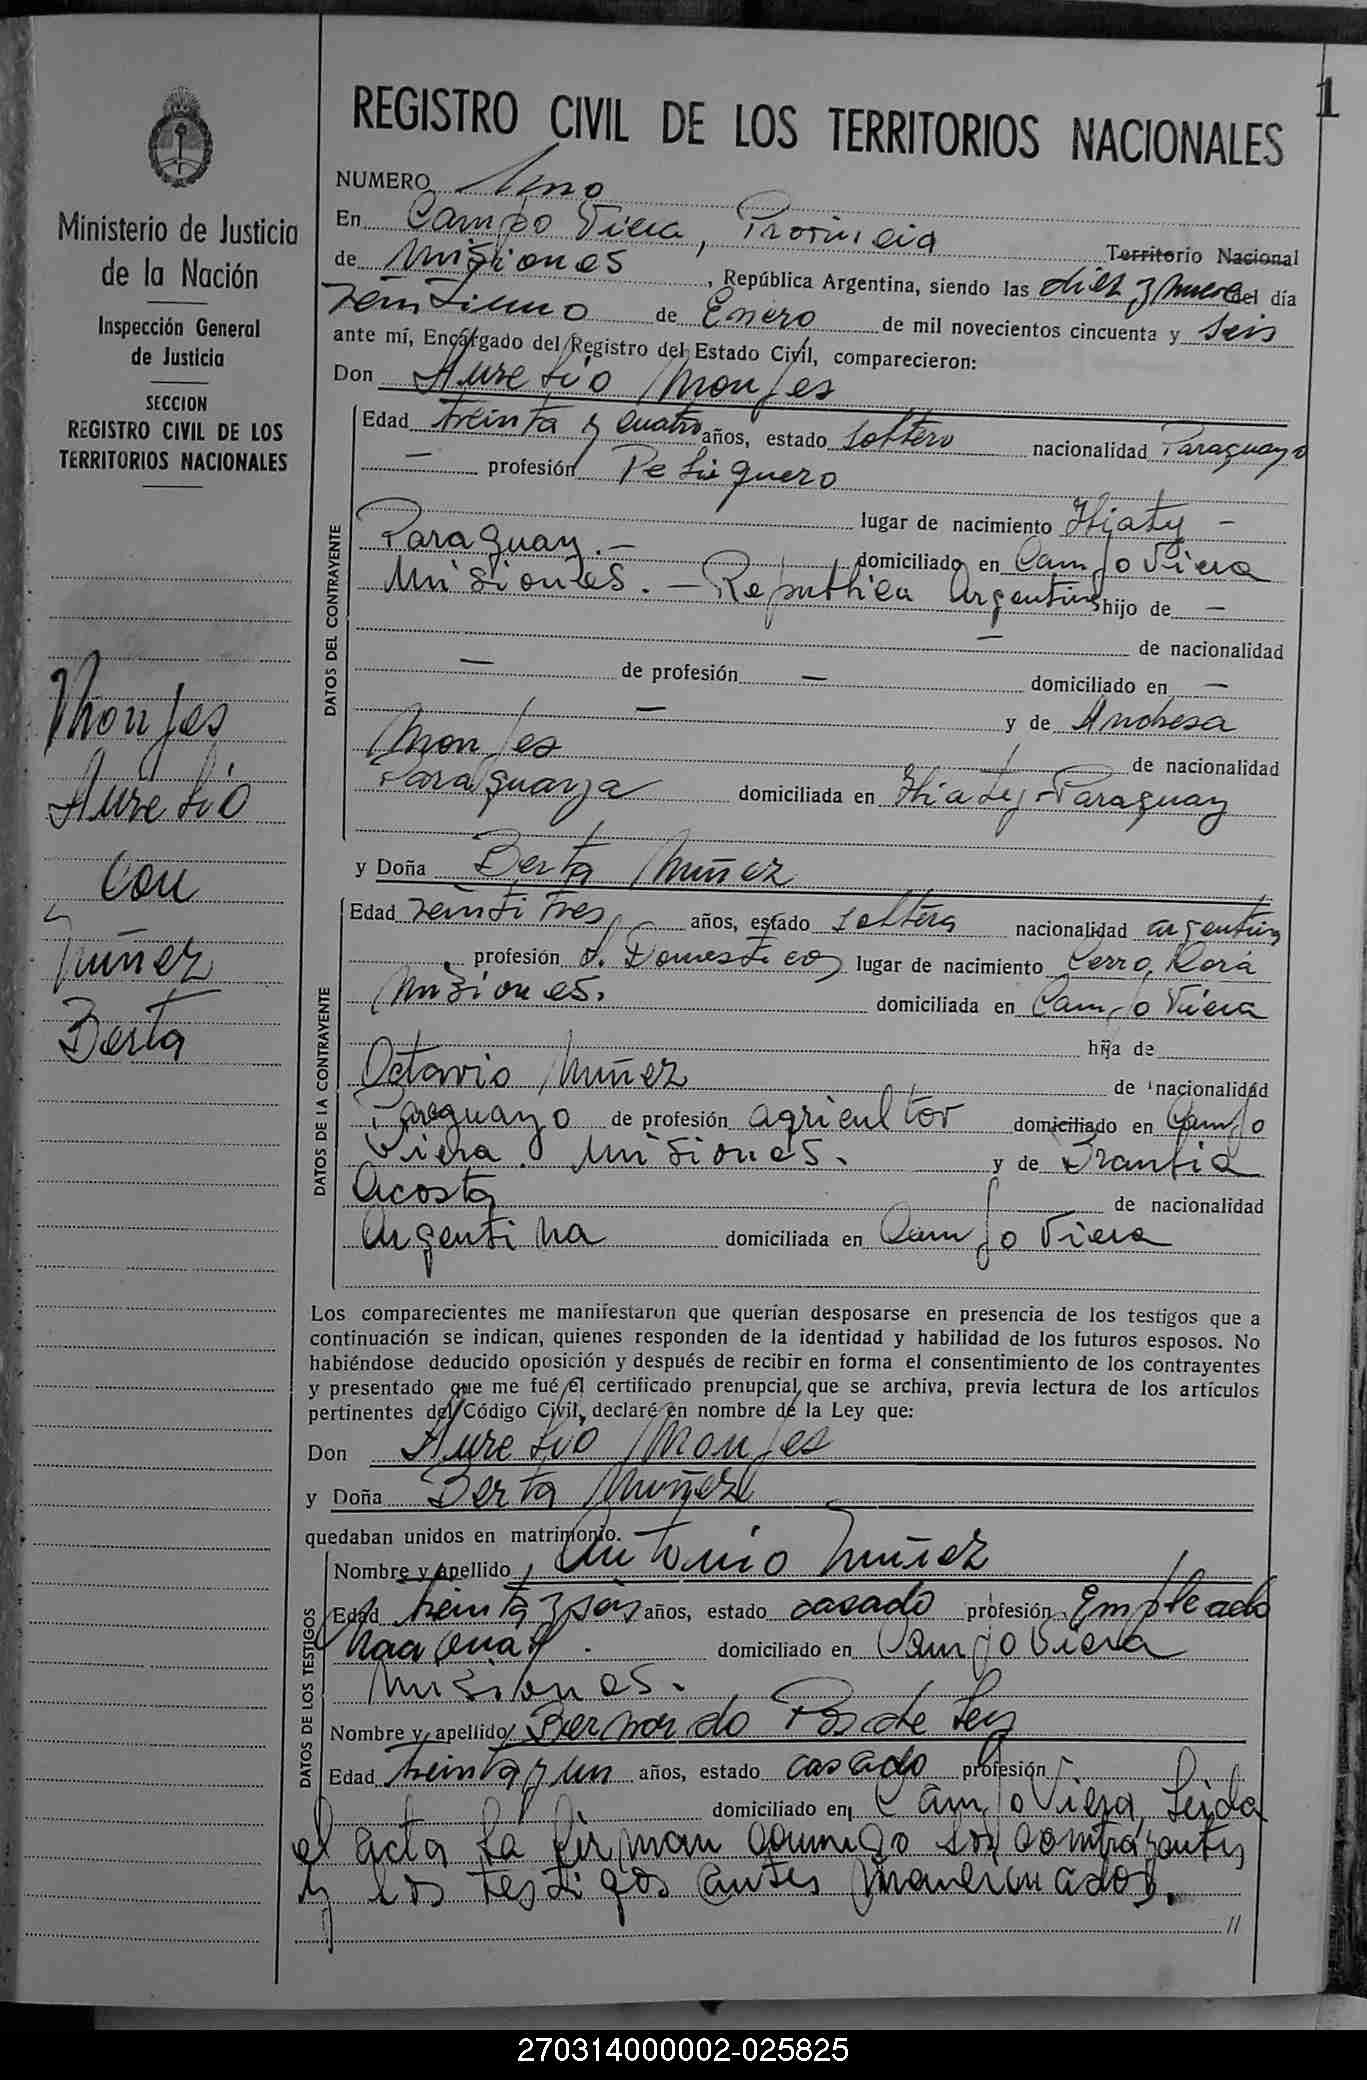 1
REGISTRO CIVIL DE LOS TERRITORIOS NACIONALES
Ministerio de Justicia
de la Nación
Inspección General
de Justicia
SECCION
REGISTRO CIVIL DE LOS
TERRITORIOS NACIONALES
Monjes
Aurelio
con
Nuñez
Berta
NUMERO Uno
En Campo Viera, Provincia Territorio Nacional
de Misiones, República Argentina, siendo las diez y nueve del día
veintiuno de Enero de mil novecientos cincuenta y seis
ante mí, Encargado del Registro del Estado Civil, comparecieron:
Don Aurelio Monjes
DATOS DEL CONTRAYENTE
Edad treinta y cuatro años, estado soltero nacionalidad Paraguayo
— profesión Peluquero
lugar de nacimiento Itiaty —
Paraguay. — domiciliado en Campo Viera
Misiones. — Republica Argentina hijo de —
— de nacionalidad
— de profesión — domiciliado en —
— y de Andresa
Monjes de nacionalidad
Paraguaya domiciliada en Itiaty - Paraguay
y Doña Berta Nuñez
DATOS DE LA CONTRAYENTE
Edad veintitres años, estado soltera nacionalidad argentina
profesión S. Domesticos lugar de nacimiento Cerro Cora
Misiones. domiciliada en Campo Viera
hija de
Octavio Nuñez de nacionalidad
Paraguayo de profesión agricultor domiciliado en Campo
Viera. Misiones. y de
Acosta de nacionalidad
Argentina domiciliada en Campo Viera
Los comparecientes me manifestaron que querían desposarse en presencia de los testigos que a
continuación se indican, quienes responden de la identidad y habilidad de los futuros esposos. No
habiéndose deducido oposición y después de recibir en forma el consentimiento de los contrayentes
y presentado que me fué el certificado prenupcial que se archiva, previa lectura de los artículos
pertinentes del Código Civil, declaré en nombre de la Ley que:
Don Aurelio Monjes
y Doña Berta Nuñez
quedaban unidos en matrimonio.
DATOS DE LOS TESTIGOS
Nombre y apellido Antonio Nuñez
Edad treinta y seis años, estado casado profesión Empleado
Nacional. domiciliado en Campo Viera
Misiones.
Nombre y apellido Bernardo
Edad treinta y un años, estado casado profesión
domiciliado en Campo Viera, Leida
el acta la firman conmigo los contrayentes
y los testigos antes mencionados.
//
270314000002-025825